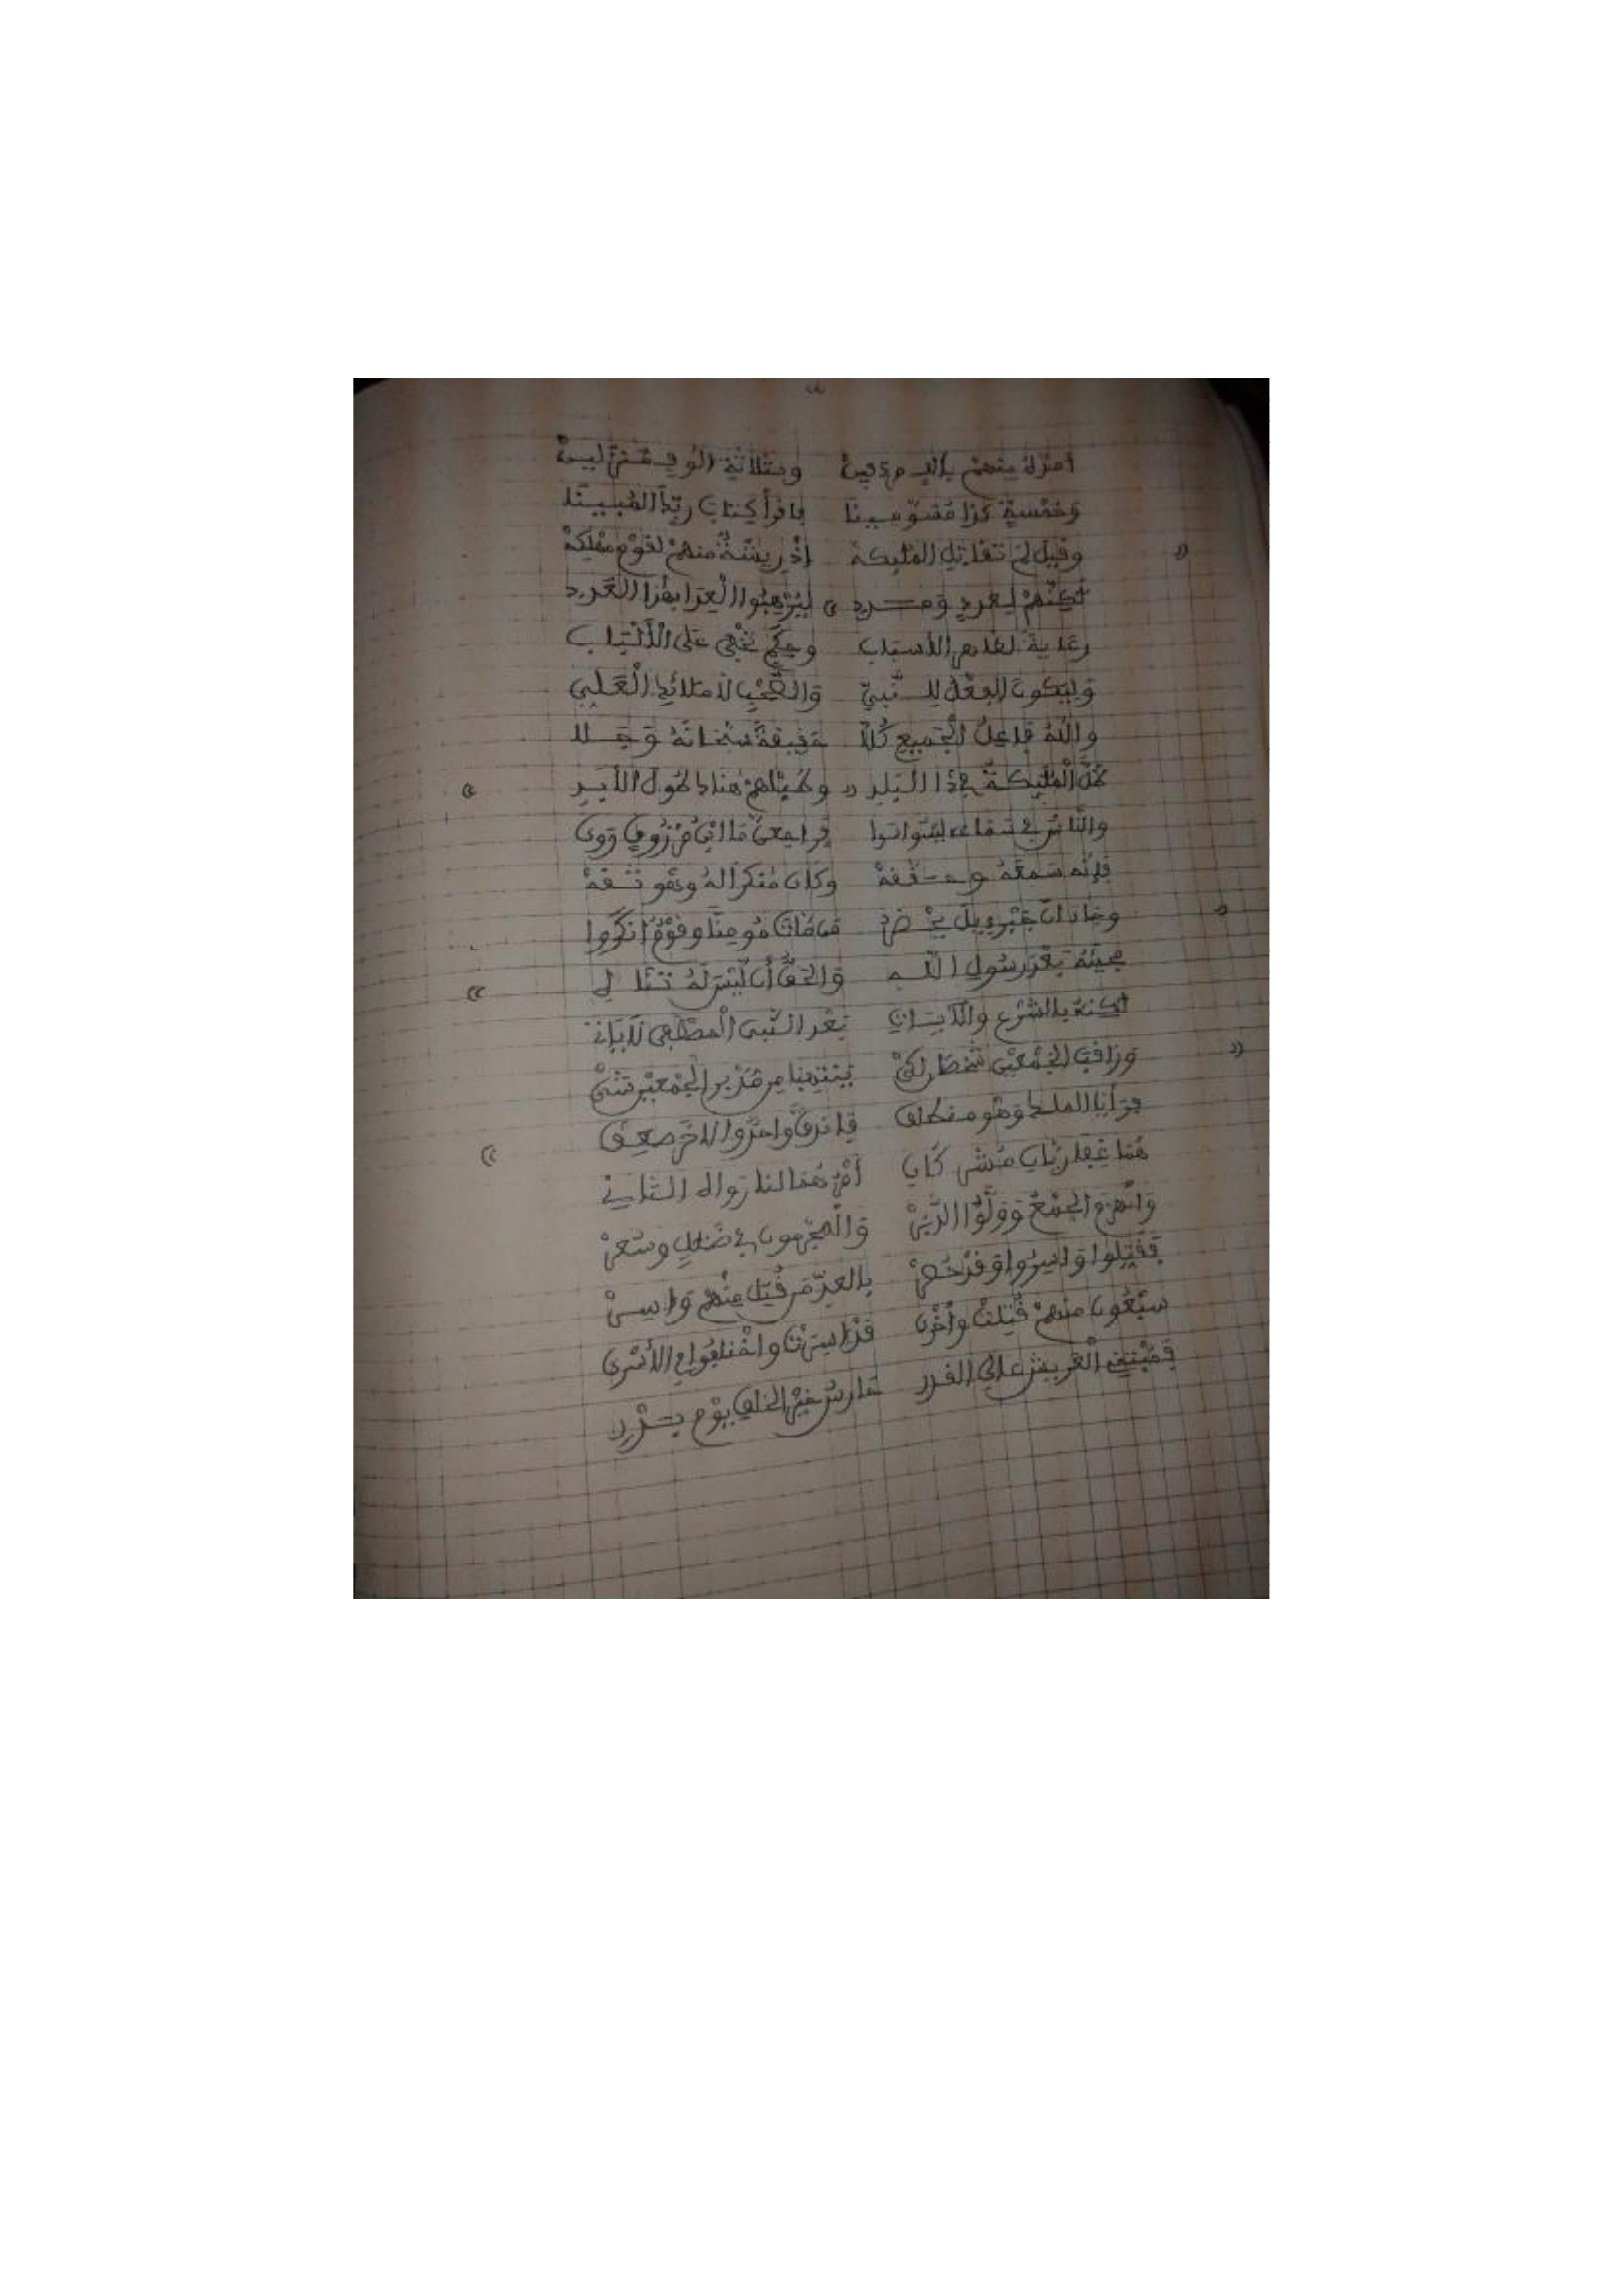 أمدك منهم بألف مردفين وبثلاثة ألوف منزلين
وخمسة كذا مسومينا فاقرأ كتاب ربك المبينا
وقيل لم تقاتل الملئكة إذ ريشة منهم لقوم مهلكة
لكنهم لعدد ومدد ليرهبوا العدا بهذا العدد
رعاية لظاهر الأسباب وحكم تخفى على الألباب
وليكون الفعل للنبي والصحب لا ملائك العلي
والله فاعل الجميع كلا حقيقة سبحانه وجلا
الملئكة في ذا البلد وطبلهم هناك طول الأبد
والناس في سماعه ليتواتروا فراجعن ما ابن مرزوق روى
فإنه سمعه وحققه وكان منكرا له وهو ثقة
وجاء أن جبرءيل يحضر من مات مومنا وقوم أنكروا
مجيئه بعد رسول الله والحق أن ليس له تنا
لكنه بالشرع والآيات بعد النبي المصطفى لا ياتي
وراقب الجمعين شخصان لكي ينتهبا من مدبر الجمعين شي
فرأيا الملك وهو منطلق فانزف واحد والآخر صعق
هما غفاريان مشركان أمرهما لنا رواه الثاني
وانهزم الجمع وولوا الدبر والمجرمون في ضلال وسعر
فقتلوا وأسروا وقد حصر بالعد من قتل منهم وأسر
سبعون منهم قتلت وأخرى قد أسرت واختلفوا في الأسرى
فمبتني العريش على الفدا حارس خير الخلق يوم بدر